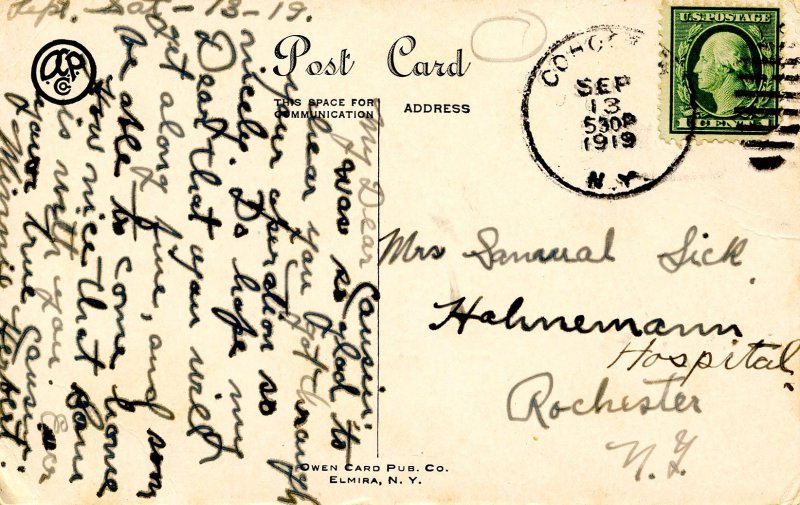 Sept. Sat - 13 - 19.
Post Card
THIS SPACE FOR
COMMUNICATION
ADDRESS
U.S. POSTAGE
SEP
13
530P
1919
N.Y.
My Dear Cousin:
I was so glad to
hear you got through
your operation so
nicely. Do hope my
Dear that you will
get along fine, and soon
be able to come home
How nice that Sam
is with you. Ever
your true Cousin
Minnie Herbert.
Mrs Samual Sick
Hahnemann
Hospital
Rochester
N.Y.
OWEN CARD PUB. CO.
ELMIRA, N. Y.